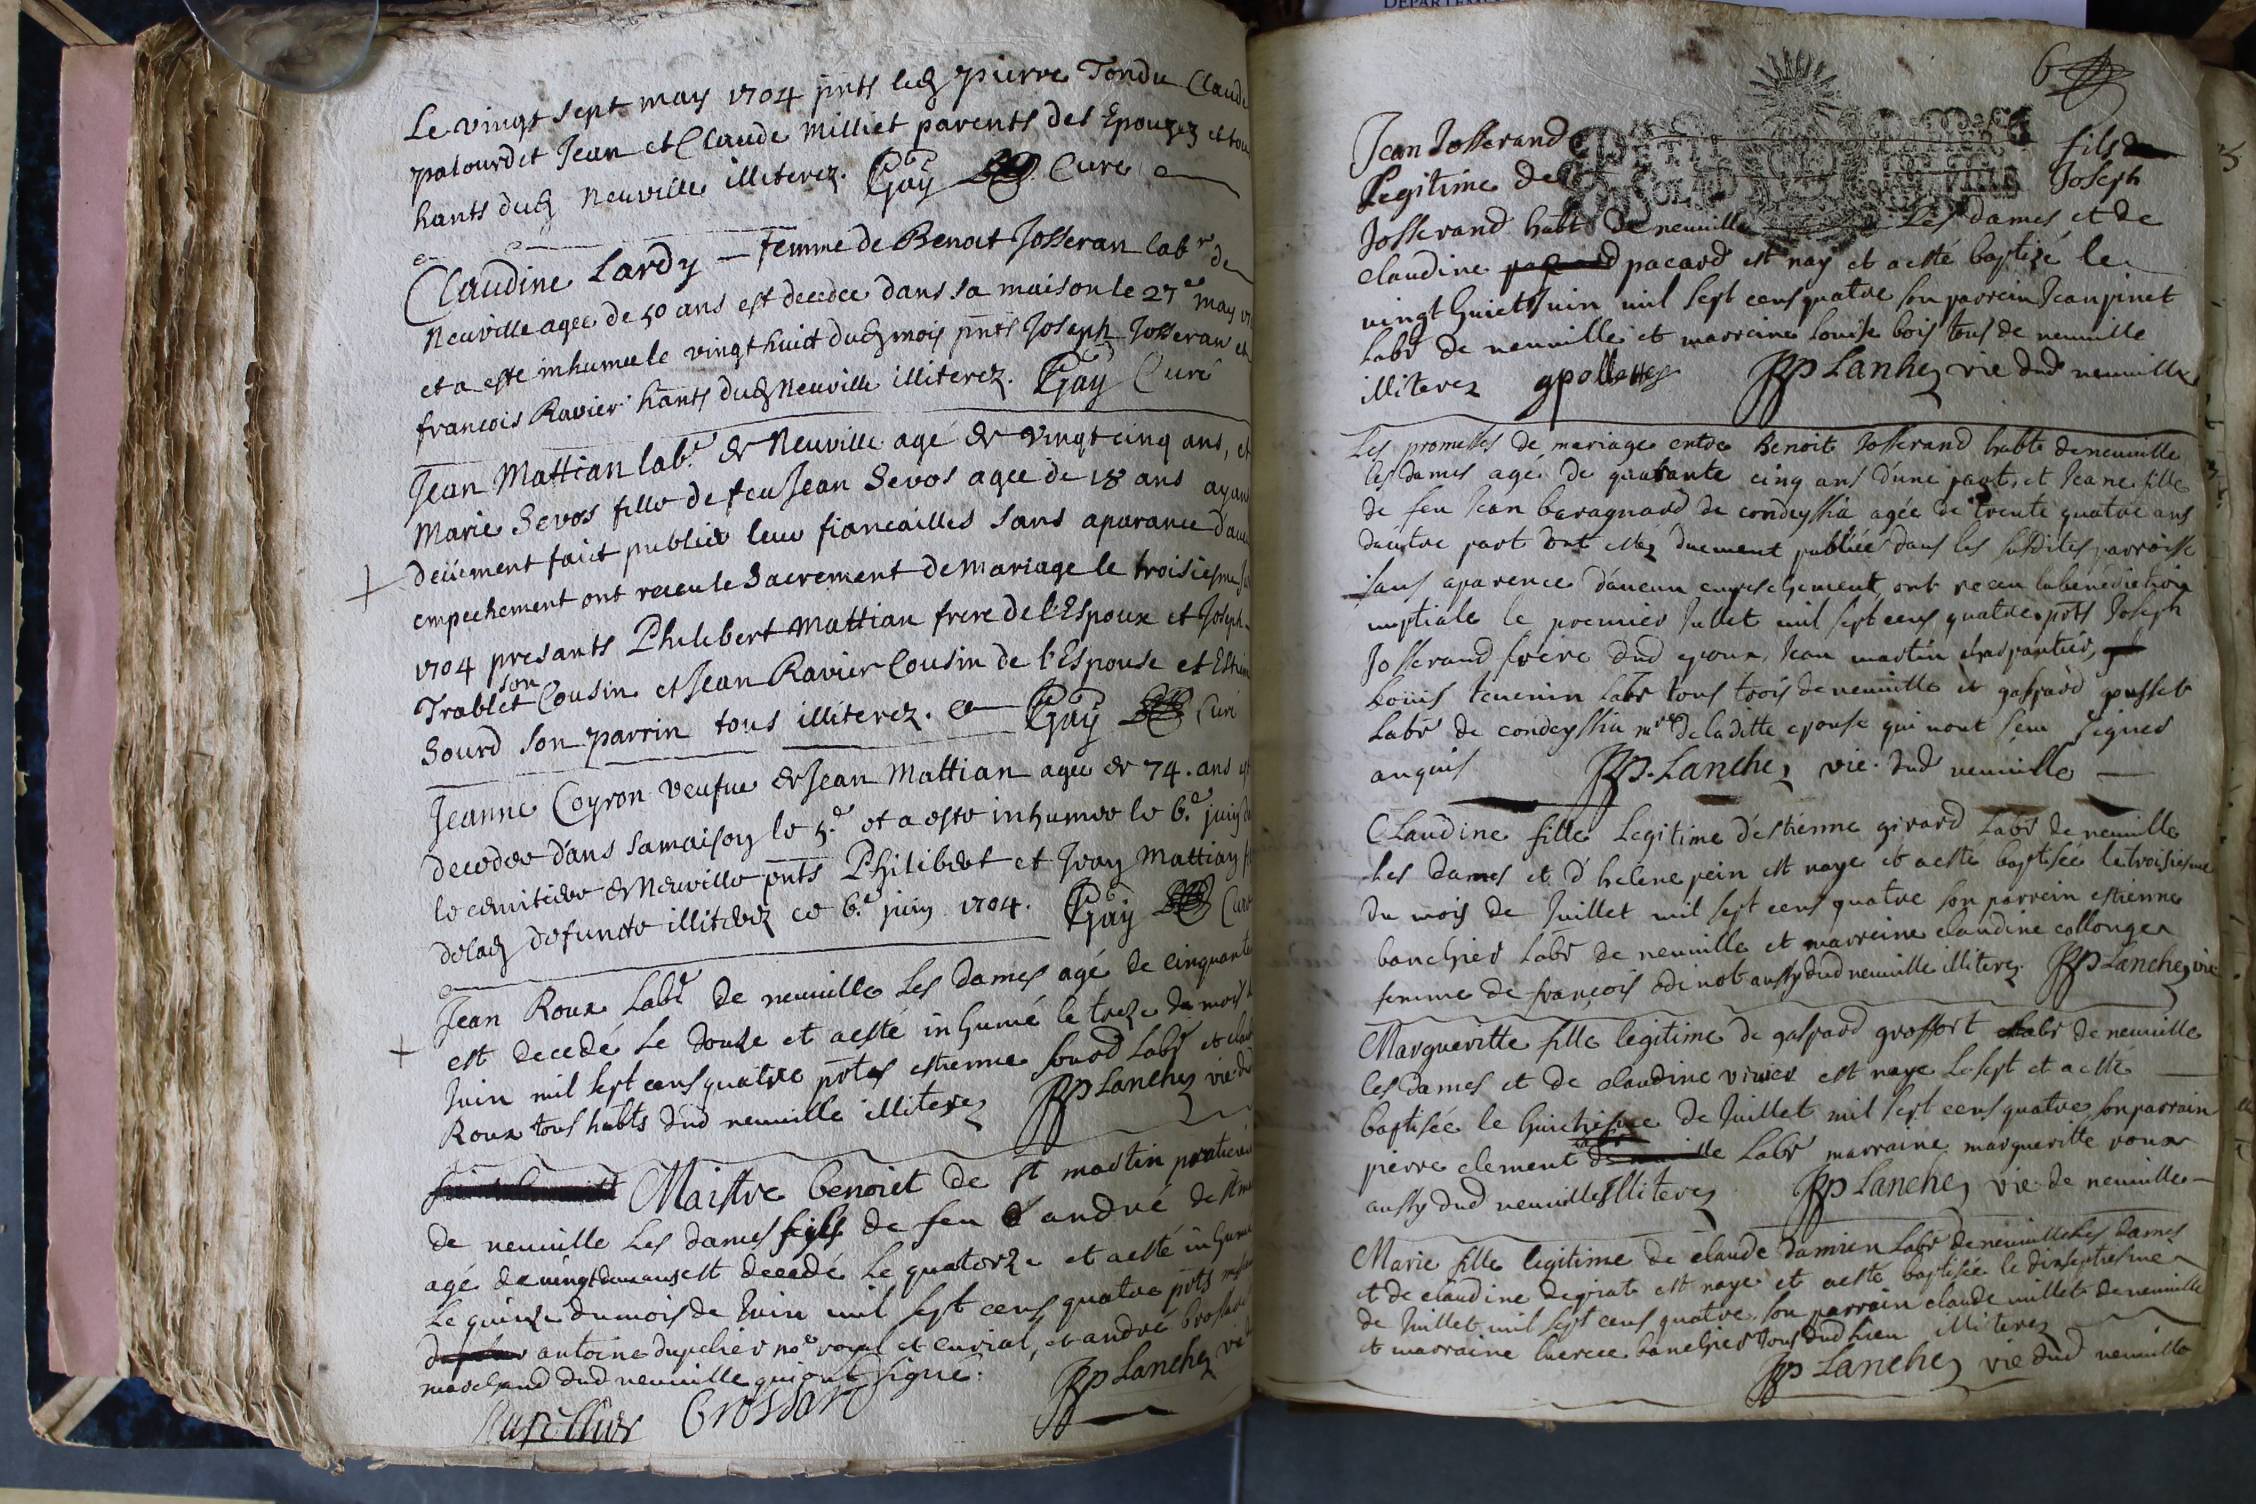 DEPARTEM
Le vingt sept may 1704 pnts led pierre Tondu Claude
palourdet Jean et Claude Milliet parents des Epouzez et tou
hants dud Neuville illiterez. Gay Curé
Claudine Lardy – femme de Benoit Josseran labr de
Neuville agee de 50 ans est decedee dans sa maison le 27e may
et a esté inhumee le vingt huict dud mois pnts Joseph Josseran et
francois Ravier hants dud Neuville illiterez. Gay Curé
Jean Mattian labr de Neuville agé de vingt cinq ans, et
Marie Sevos fille de feu Jean Sevos agee de 18 ans ayant
deüement faict publier leur fiancailles sans aparance d'aucun
empechement ont receu le Sacrement de Mariage le troisiesme
1704 presants Philibert Mattian frere de l'Espoux et Joseph
Trablet son Cousin et Jean Ravier Cousin de l'Espouse et Estien
Sourd son parrin tous illiterez. Gay Curé
Jeanne Coyron veufue de Jean Mattian agee de 74. ans est
decedee dans sa maison le 5.e et a esté inhumee le 6.e juin
le cemitiere de Neuville pnts Philibert et Jean Mattian
de lad defuncte illiterez ce 6.e juin 1704. Gay Curé
Jean Roux Labr de neuuille Les dames agé de cinquante
est decedé Le douze et aesté inhumé le treze du mois de
Juin mil sept cens quatre pntes estienne sourd Labr et claude
Roux tous habts dud neuuille illiterez JPP Lanchez vic dud
Maistre benoict de st martin praticien
de neuuille Les dames fils de feu andré de st m
agé de vingt deux ans est decedé Le quatorze et aesté inhumé
Le quinze du mois de Juin mil sept cens quatre pnts
antoine dupelier no.re royal et curial, et andré brossard
marchand dud neuuille qui ont signé. JPP Lanchez vic
Dupellier Brossard
6
Jean Josserand fils
Legitime de Joseph
Josserand habt de neuuille Les dames et de
claudine pacard est nay et aesté baptizé le
vingt huict Juin mil sept cens quatre son parrein Jean pinet
Labr de neuuille et marreine Louise bois tous de neuuille
illiterez gpollettes JPP Lanhez vic dud neuuille
Les promesses de mariage entre Benoit Josserand habt de neuuille
les dames agé de quarante cinq ans d'une part, et Jeane fille
de feu Jean baragnard de condeyssia agée de trente quatre ans
d'autre part ont estez duement publiée dans les susdites parroisse
sans aparence d'aucun empeschement, ont receu la benediction
nuptiale le premier Jullet mil sept cens quatre pnts Joseph
Josserand frere dud epoux, Jean martin charpantier,
Loüis teuenin Labr tous trois de neuuille et gaspard gousset
Labr de condeyssia de la ditte epouse qui nont seu signer
anquis JPP. Lanchez vic. dud neuuille
Claudine fille Legitime d'estienne girard Labr de neuuille
Les dames et d'helene pein est naye et aesté baptisée le troisiesme
du mois de Juillet mil sept cens quatre son parrein estienne
banchier Labr de neuuille et marreine claudine collonge
femme de françois odinot aussy dud neuuille illiterez. JPP Lanchez vic
Margueritte fille legitime de gaspard groffort Labr de neuuille
les dames et de claudine viuier est naye Le sept et aesté
baptisée le huictiesme de Juillet mil sept cens quatre son parrain
pierre clement Labr marraine margueritte roux
aussy dud neuuille Illiterez JPP Lanchez vic. de neuuille
Marie fille legitime de claude damien Labr de neuuille Les dames
et de claudine degirat est naye et aesté baptisée le dixseptiesme
de Juillet mil sept cens quatre, son parrain claude millet de neuuille
et marraine Luerece banchier tous dud Lieu illiterez
JPP Lanchez vic dud neuuille